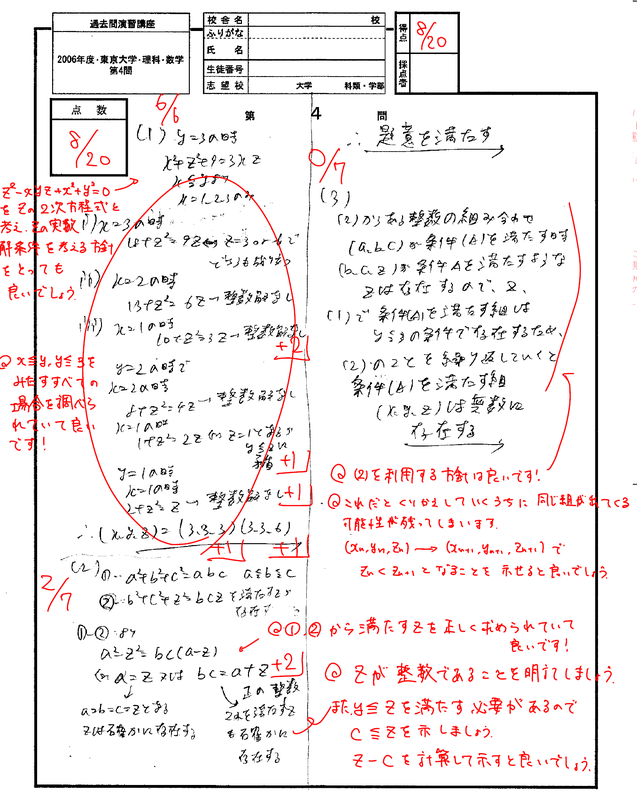 過去問演習講座
2006年度・東京大学・理科・数学
第4問
校舎名
校
ふりがな
氏 名
生徒番号
志望校 大学 科類・学部
得点
8/20
採点者
点数
8/20
第 4 問
6/6
(1) y=3の時
x²+z²+9=3xz
x≦y≦3より
x=1,2,3のみ
z²-xyz+x²+y²=0
をzの2次方程式と
考え、zの実数
解条件を考える方針
をとっても
良いでしょう。
i) x=3の時
18+z²=9z⇔z=3or6で
どちらも成り立つ
(ii) x=2の時
13+z²=6z→整数解なし
(iii) x=1の時
10+z²=3z→整数解なし
+2
x≦y, y≦3を
みたすすべての
場合を調べら
れていて良い
です!
y=2の時で
x=2の時
8+z²=4z→整数解なし
x=1の時
y≦zに
矛盾
+1
y=1の時
x=1の時
2+z²=z→整数解なし
+1
∴(x,y,z)=(3,3,3)(3,3,6)
+1 +1
2/7
(2) ①…a²+b²+c²=abc a≦b≦c
②…b²+c²+z²=bczを満たすzが
存在て
①-②より
a²-z²=bc(a-z)
a=z又は bc=a+z
+2
a=b=c=zとなる
zは確かに存在する
正の整数
これを満たすz
も確かに
存在する
∴題意を満たす
0/7
(3)
(2)からある整数の組み合わせ
(a,b,c)が条件(A)を満たす時
(b,c,z)が条件Aを満たすような
zは存在するので、
(1)で条件(A)を満たす組は
y≦3の条件で存在するため、
(2)のことを繰り返していくと
条件(A)を満たす組
(x,y,z)は無数に
存在する
(2)を利用する方針は良いです!
これだとくりかえしていくうちに同じ組がでてくる
可能性が残ってしまいます。
(xn,yn,zn)→(xn+1,yn+1,zn+1)で
zn<zn+1となることを示せると良いでしょう。
①,②から満たすzを正しく求められていて
良いです!
zが整数であることを明言しましょう。
また、y≦zを満たす必要があるので
c≦zを示しましょう。
z-cを計算して示すと良いでしょう。